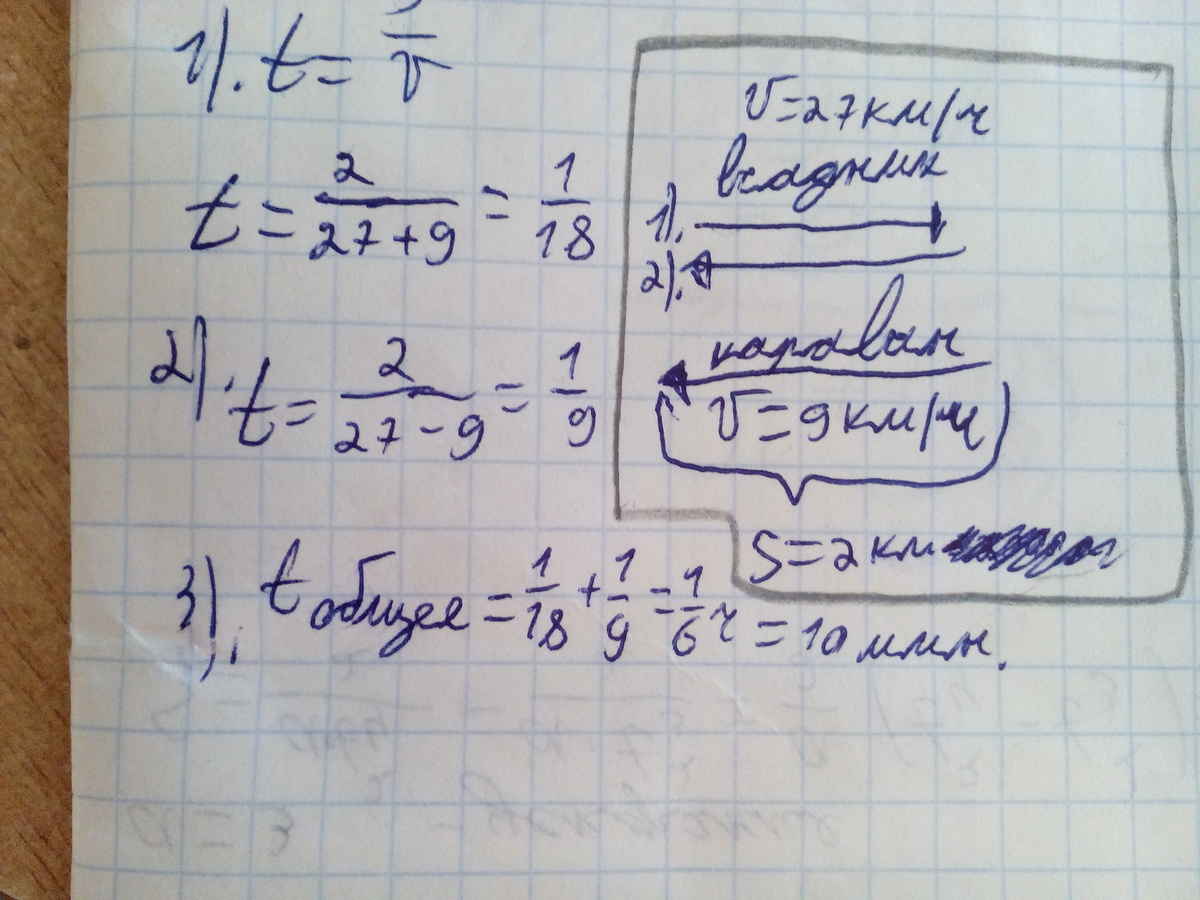 1). t = S/v
t = 2/(27+9) = 1/18
2). t = 2/(27-9) = 1/9
3). t общее = 1/18 + 1/9 = 1/6 ч = 10 мин.
v = 27 км/ч
всадник
1).
2).
караван
v = 9 км/ч
S = 2 км